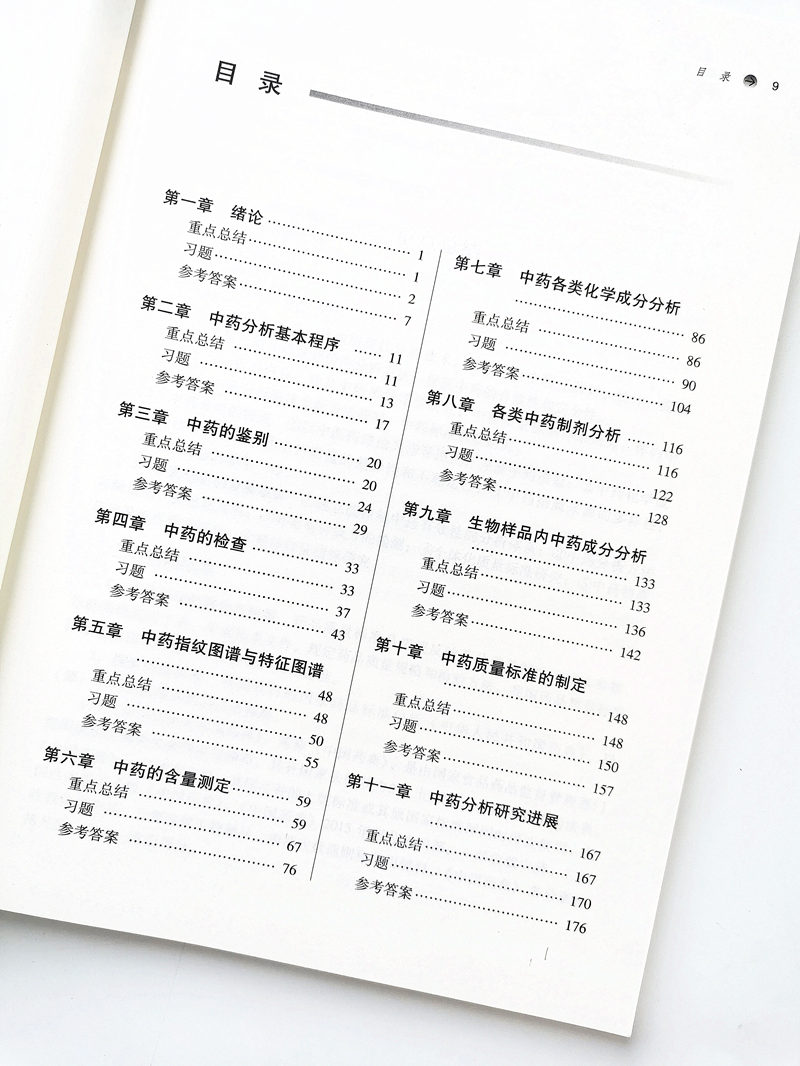 目 录 9
目 录
第一章 绪论 1
重点总结 1
习题 2
参考答案 7
第二章 中药分析基本程序 11
重点总结 11
习题 13
参考答案 17
第三章 中药的鉴别 20
重点总结 20
习题 24
参考答案 29
第四章 中药的检查 33
重点总结 33
习题 37
参考答案 43
第五章 中药指纹图谱与特征图谱
48
重点总结 48
习题 50
参考答案 55
第六章 中药的含量测定 59
重点总结 59
习题 67
参考答案 76
第七章 中药各类化学成分分析
86
重点总结 86
习题 90
参考答案 104
第八章 各类中药制剂分析 116
重点总结 116
习题 122
参考答案 128
第九章 生物样品内中药成分分析
133
重点总结 133
习题 136
参考答案 142
第十章 中药质量标准的制定
148
重点总结 148
习题 150
参考答案 157
第十一章 中药分析研究进展
167
重点总结 167
习题 170
参考答案 176